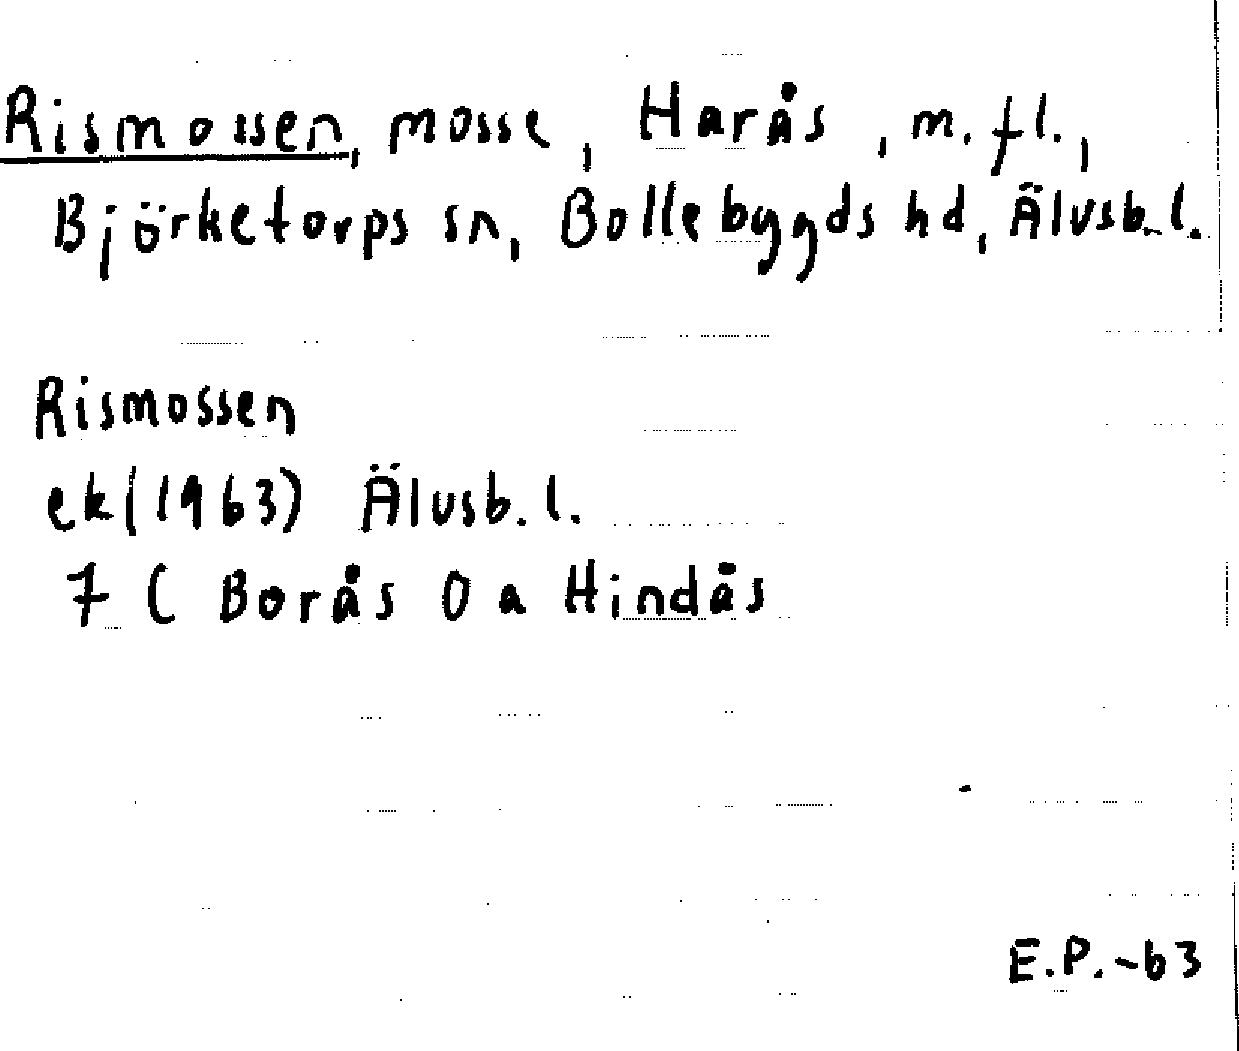 Rismossen, mosse, Harås, m. fl.,
Björketorps sn, Bollebygds hd, Älvsb. l.
Rismossen
ek (1963) Älvsb. l.
7 C Borås 0 a Hindås
E.P. -63